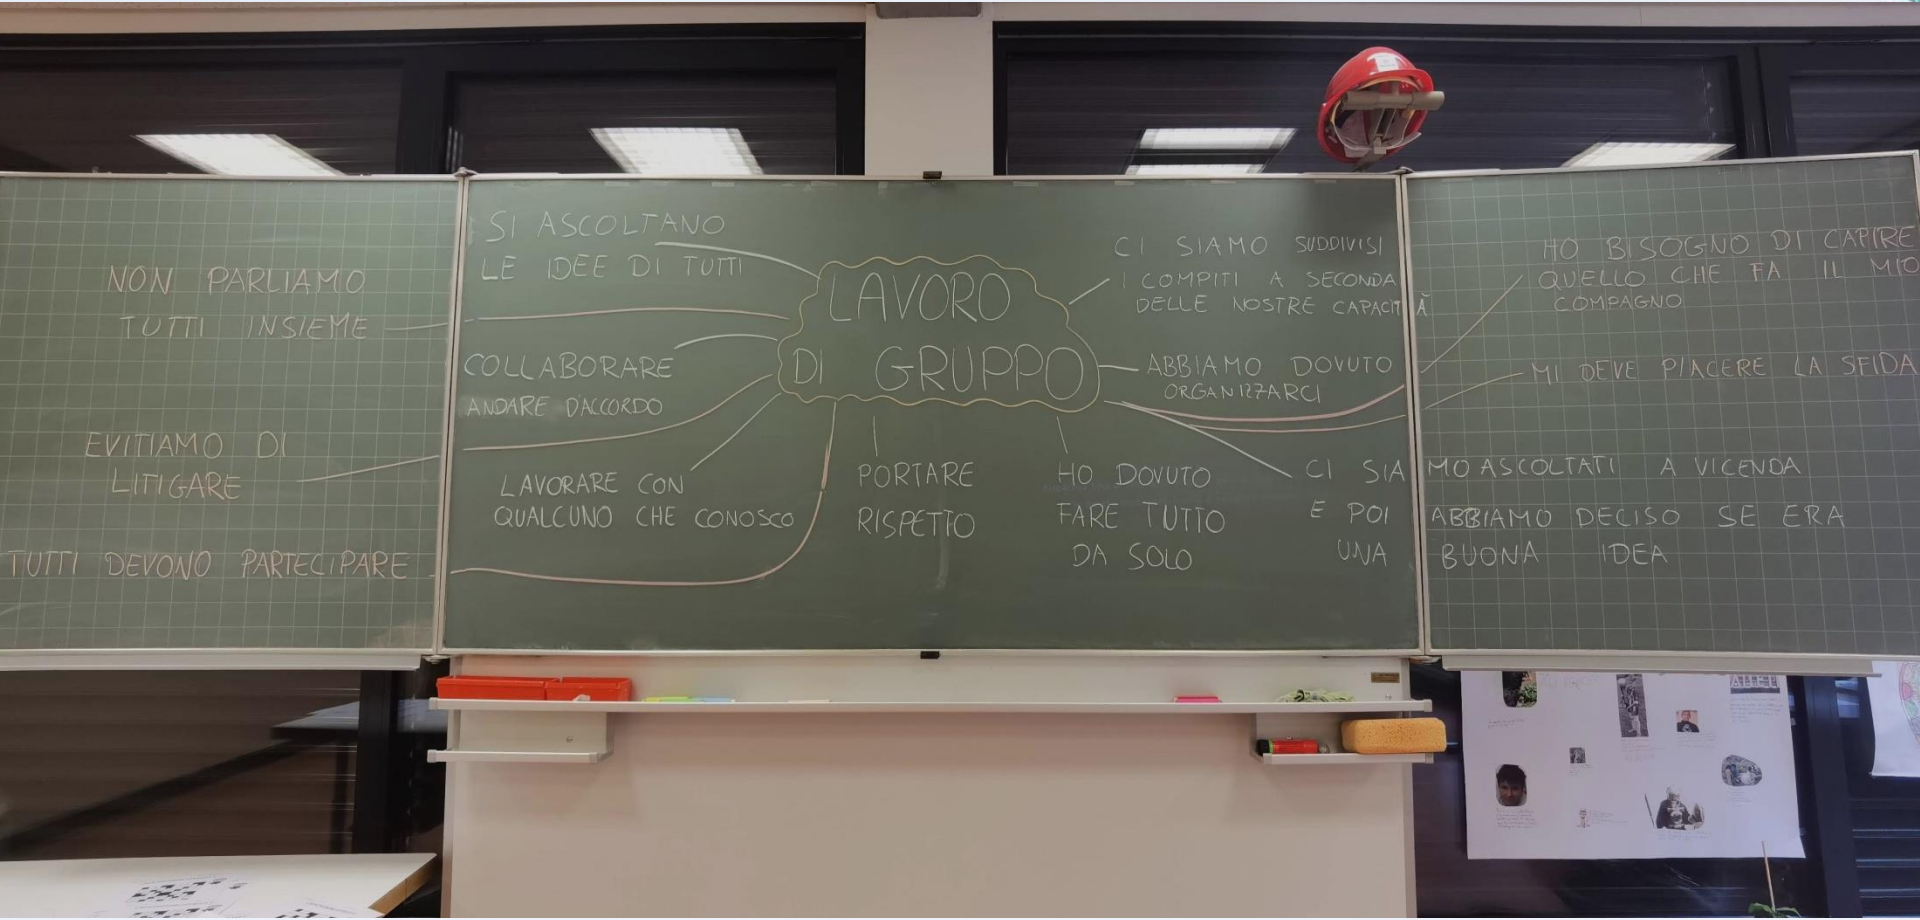 NON PARLIAMO
TUTTI INSIEME
EVITIAMO DI
LITIGARE
TUTTI DEVONO PARTECIPARE
SI ASCOLTANO
LE IDEE DI TUTTI
COLLABORARE
ANDARE D'ACCORDO
LAVORARE CON
QUALCUNO CHE CONOSCO
LAVORO
DI GRUPPO
PORTARE
RISPETTO
HO DOVUTO
FARE TUTTO
DA SOLO
CI SIAMO SUDDIVISI
I COMPITI A SECONDA
DELLE NOSTRE CAPACITÀ
ABBIAMO DOVUTO
ORGANIZZARCI
CI SIAMO ASCOLTATI A VICENDA
E POI ABBIAMO DECISO SE ERA
UNA BUONA IDEA
HO BISOGNO DI CAPIRE
QUELLO CHE FA IL MIO
COMPAGNO
MI DEVE PIACERE LA SFIDA